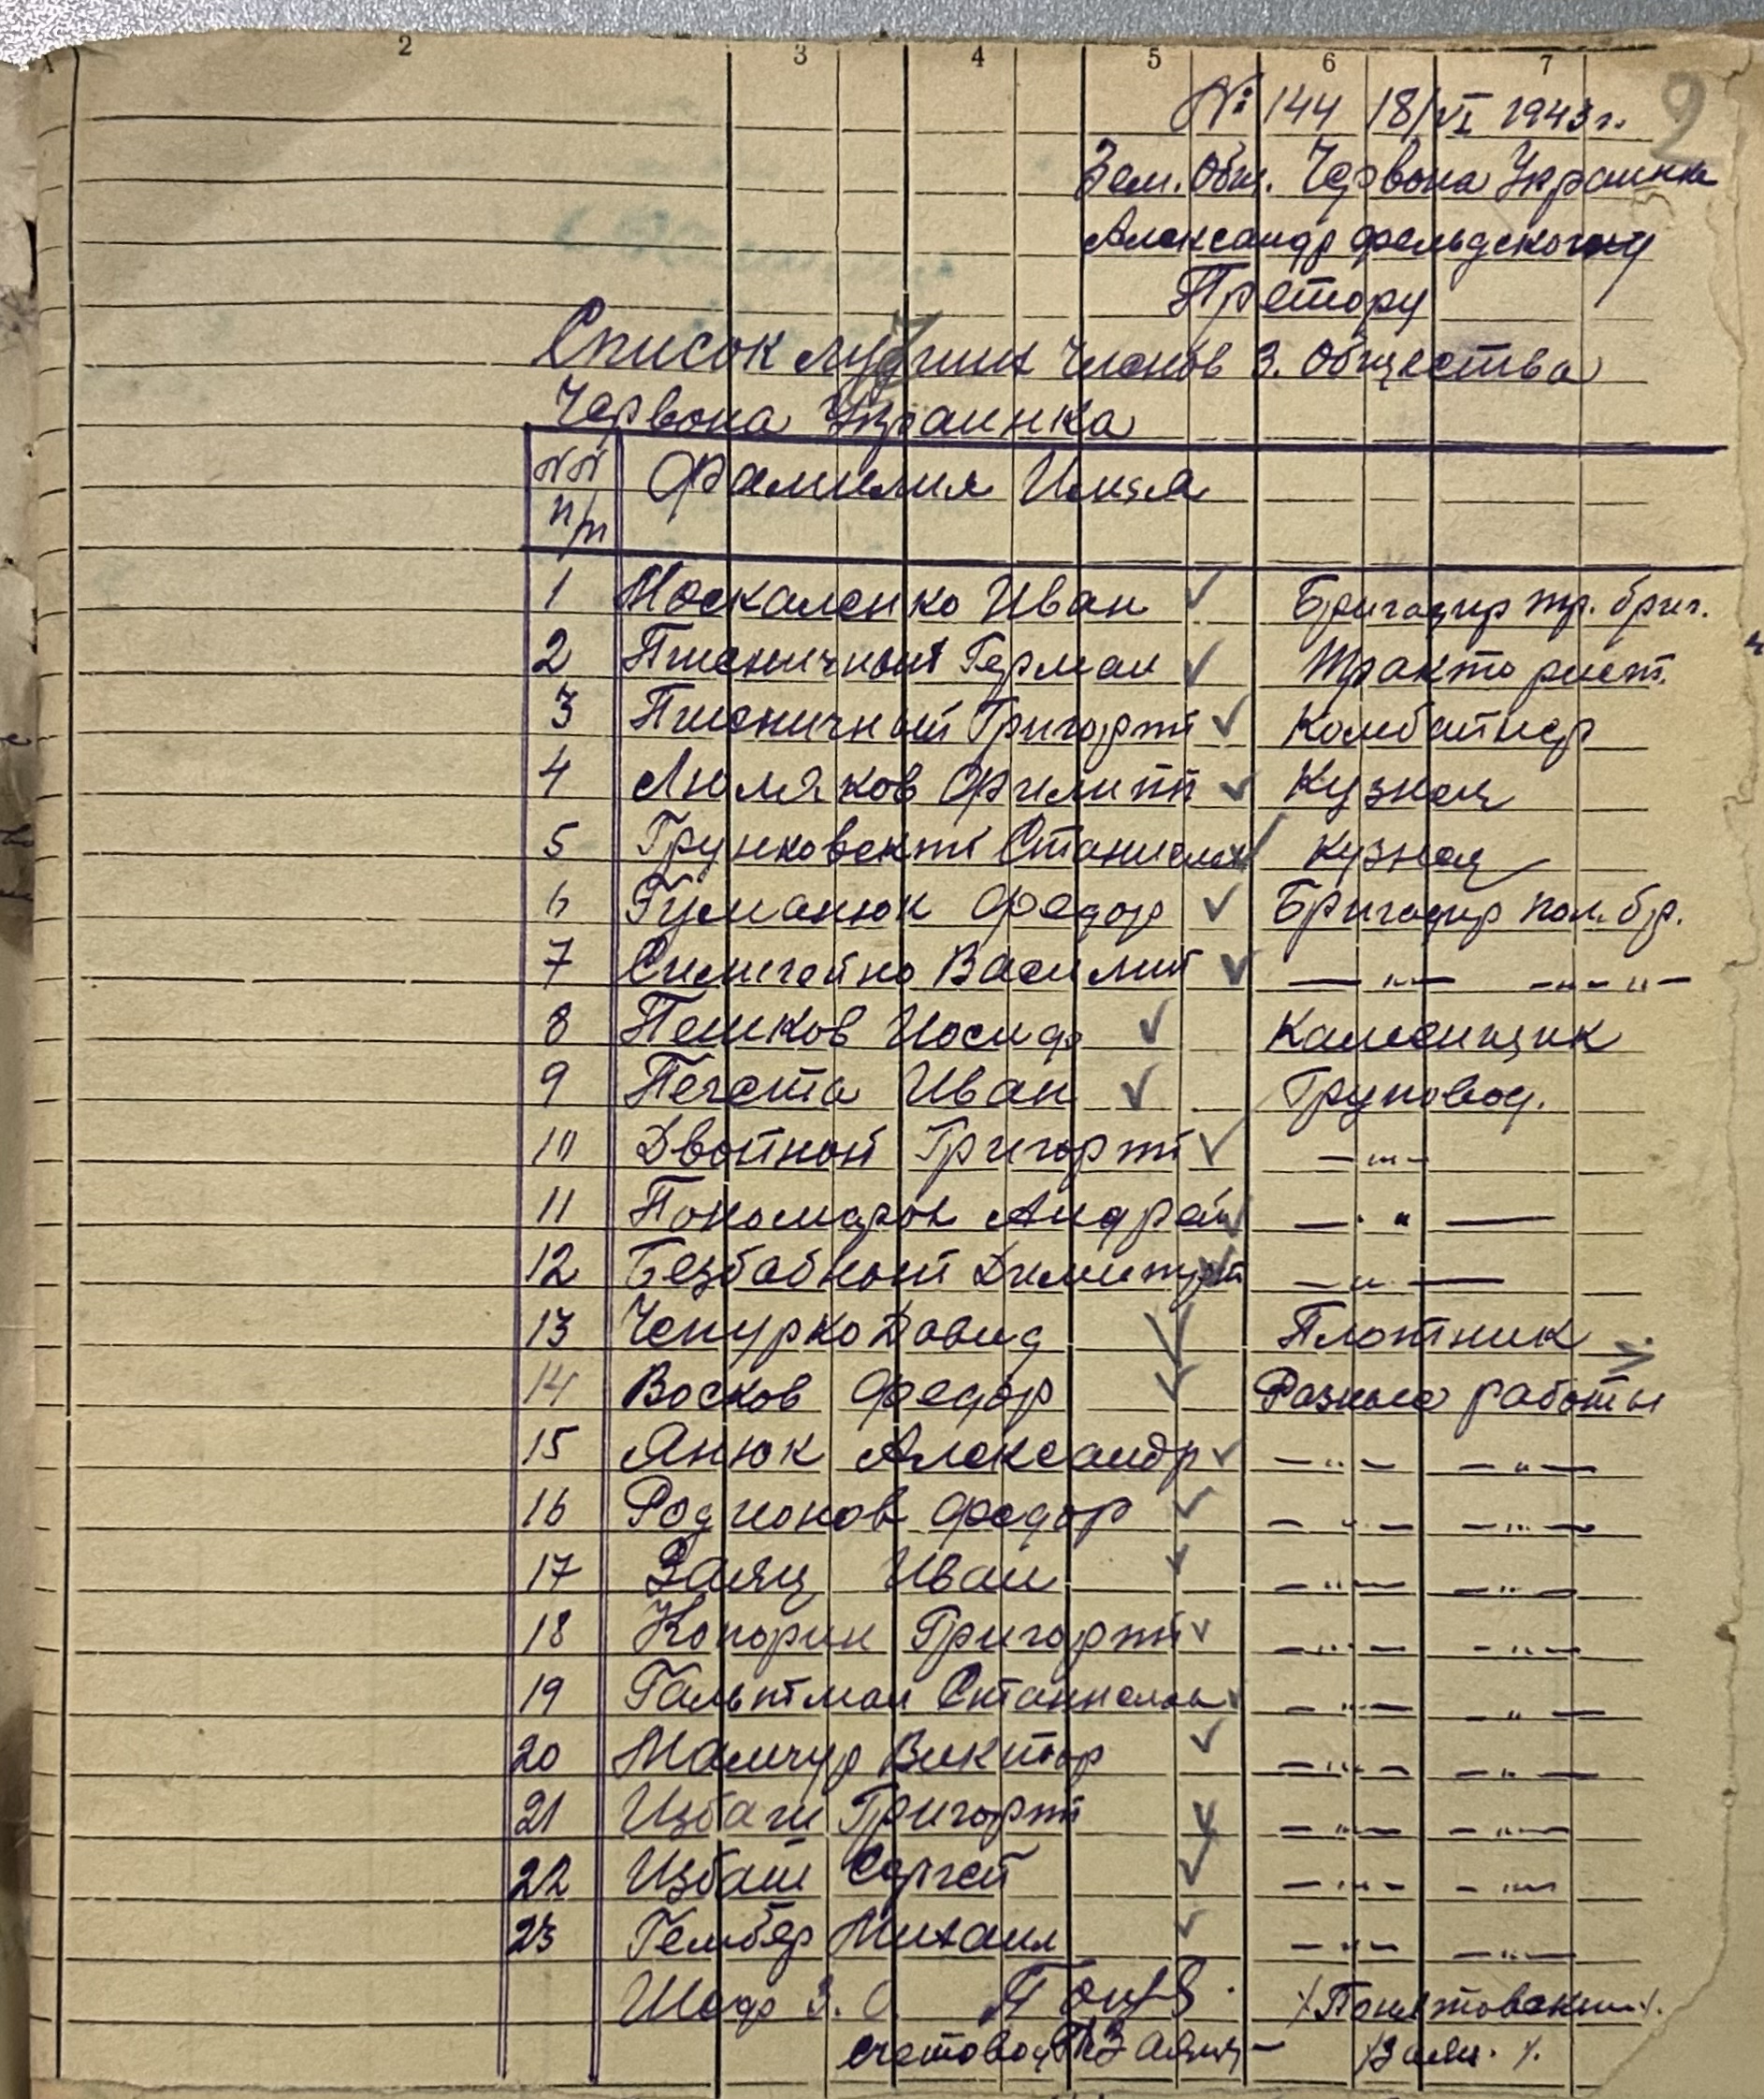 2 3 4 5 6 7
2
№ 144 18/VI 1943 г.
Зем. Общ. Червона Украинка
Александрфельдскому
Претору
Список лучших членов З. Общества
Червона Украинка
№№ п/п Фамилия Имя
1 Москаленко Иван ✓ Бригадир тр. бриг.
2 Пшеничный Герман ✓ Тракторист.
3 Пшеничный Григорий ✓ Комбайнер
4 Люляков Филипп ✓ Кузнец
5 Грунковский Станислав ✓ Кузнец
6 Гуманюк Федор ✓ Бригадир пол. бр.
7 Василий ✓ — " — — " —
8 Пешков Иосиф ✓ Каменщик
9 Печета Иван ✓ Груповод.
10 Двойной Григорий ✓ — " —
11 Пономарев Андрей ✓ — " —
12 Безбабный Димитрий ✓ — " —
13 Чепурко Давид ✓ Плотник
14 Восков Федор ✓ Разные работы
15 Янюк Александр ✓ — " — — " —
16 Родионов Федор ✓ — " — — " —
17 Заяц Иван ✓ — " — — " —
18 Копорин Григорий ✓ — " — — " —
19 Гальпман Станислав ✓ — " — — " —
20 Мамчур Виктор ✓ — " — — " —
21 Избаш Григорий ✓ — " — — " —
22 Избаш Сергей ✓ — " — — " —
23 Гембер Михаил ✓ — " — — " —
Шеф З. О. /Понятовский/.
счетовод Заяц /Заяц./.